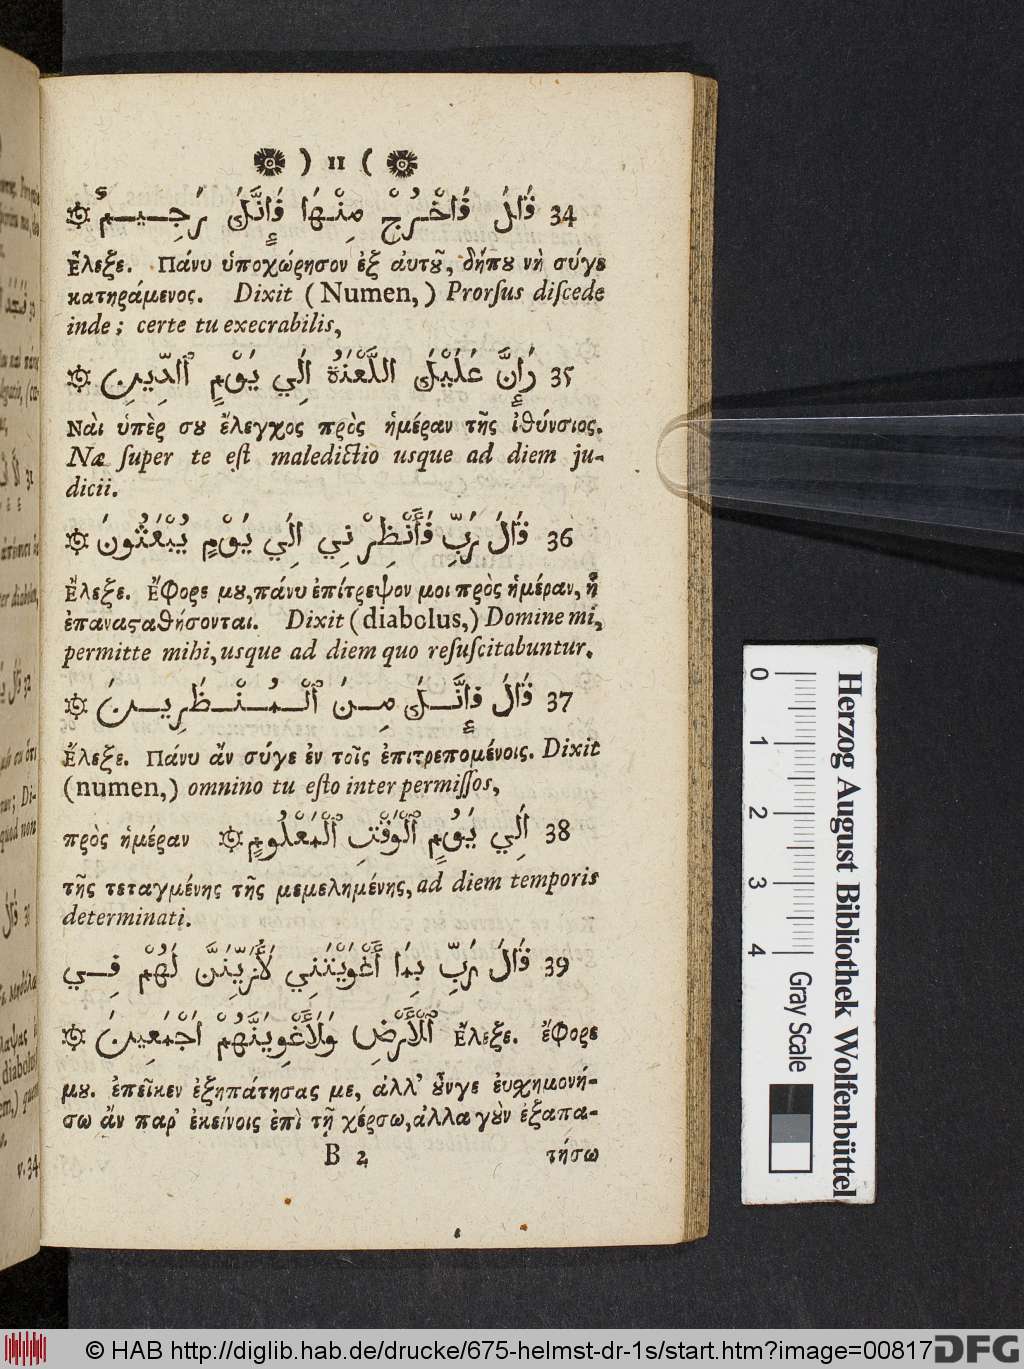 ) 11 (
34 قَالَ فَاخْرُجْ مِنْهَا فَإِنَّكَ رَجِيمٌ
Ἔλεξε. Πάνυ ὑποχώρησον ἐξ ἀυτȣ͂, δήπȣ νὴ σύγε
κατηράμενος. Dixit (Numen,) Prorſus diſcede
inde; certe tu execrabilis,
35 وَإِنَّ عَلَيْكَ اللَّعْنَةُ إِلَي يَوْمِ ٱلدِّينِ
Νὰι ὑπὲρ σȣ ἔλεγχος πρὸς ἡμέραν τῆς ἰθύνσιος.
Næ ſuper te eſt maledictio usque ad diem ju-
dicii.
36 قَالَ رَبِّ فَأَنْظِرْنِي إِلَي يَوْمٍ يُبْعَثُونَ
Ἔλεξε. Ἔφορε μȣ, πάνυ ἐπίτρεψον μοι πρὸς ἡμέραν, ᾗ
ἐπαναϛαθήσονται. Dixit (diabolus,) Domine mi,
permitte mihi, usque ad diem quo reſuſcitabuntur.
37 قَالَ فَإِنَّكَ مِنَ ٱلْمُنْظَرِينَ
Ἔλεξε. Πάνυ ἂν σύγε ἐν τοῖς ἐπιτρεπομένοις. Dixit
(numen,) omnino tu eſto inter permiſſos,
38 إِلَي يَوْمِ ٱلْوَقْتِ ٱلْمَعْلُومِ πρὸς ἡμέραν
τῆς τεταγμένης τῆς μεμελημένης, ad diem temporis
determinati.
39 قَالَ رَبِّ بِمَا أَغْوَيْتَنِي لَأُزَيِّنَنَّ لَهُمْ فِي
ٱلْأَرْضِ وَلَأُغْوِيَنَّهُمْ أَجْمَعِينَ Ἔλεξε. ἔφορε
μȣ. ἐπεῖκεν ἐξηπάτησας με, ἀλλ' ȣ̓͂νγε ἐυχημονή-
σω ἂν παρ' ἐκείνοις ἐπὶ τῇ χέρσω, ἀλλα γȣ̂ν ἐξαπα-
B 2 τήσω
v. 34
0 1 2 3 4 Gray Scale
Herzog August Bibliothek Wolfenbüttel
© HAB http://diglib.hab.de/drucke/675-helmst-dr-1s/start.htm?image=00817
DFG